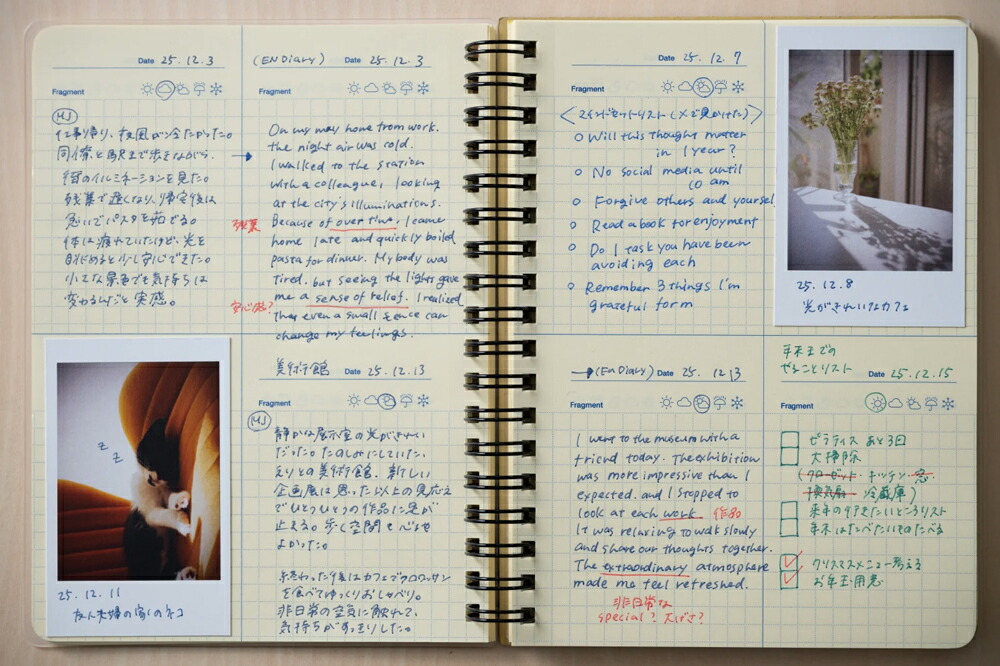 Date 25.12.3
Fragment
MJ
仕事帰り、夜風が冷たかった。
同僚と駅まで歩きながら、
街のイルミネーションを見た。
残業で遅くなり、帰宅後は
急いでパスタを茹でる。
体は疲れていたけど、光を
眺めると少し安心できた。
小さな景色でも気持ちは
変わるんだと実感。
(EN Diary) Date 25.12.3
Fragment
On my way home from work.
the night air was cold.
I walked to the station
with a colleague, looking
at the city's illuminations.
残業
Because of over time, I came
home late and quickly boiled
pasta for dinner. My body was
tired, but seeing the lights gave
安心感?
me a sense of relief. I realized
that even a small scence can
change my feelings.
25.12.11
友人夫婦の家のネコ
z
z
美術館 Date 25.12.13
Fragment
MJ
静かな展示室の光がきれい
だった。たのしみにしていた、
えりとの美術館。新しい
企画展は思った以上の見応え
でひとつひとつの作品に足が
止まる。歩く空間も心地
よかった。
終わった後はカフェでクロワッサン
を食べてゆっくりおしゃべり。
非日常の空気に触れて、
気持ちがすっきりした。
Date 25.12.7
Fragment
<マインドセットリスト(Xで見かけた)>
Will this thought matter
in 1 year?
No social media until
10 am
Forgive others and yoursel
Read a book for enjoyment
Do 1 task you have been
avoiding each
Remember 3 things I'm
grateful form
25.12.8
光がきれいなカフェ
(En Diary) Date 25.12.13
Fragment
I went to the museum with a
friend today. The exhibition
was more impressive than I
expected. and I stopped to
look at each work. 作品
It was relaxing to walk slowly
and share our thoughts together.
The extraordinary atmosphere
made me feel refreshed.
非日常な
special? 大げさ?
年末までの
やることリスト Date 25.12.15
Fragment
ピラティス あと3回
大掃除
(クローゼット キッチン 窓
換気扇 冷蔵庫)
来年の行きたいところリスト
年末にたべたいものたべる
クリスマスメニュー考える
お年玉用意